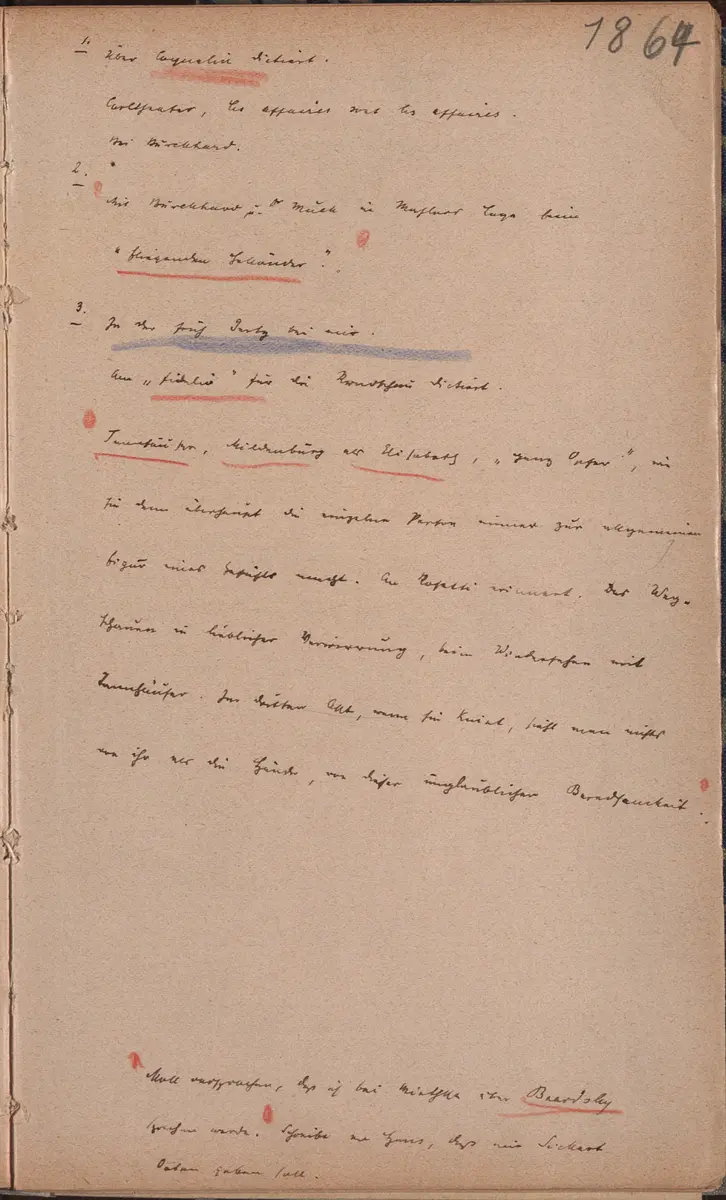 1864
1. Über Coquelin dictiert.
Carltheater, les affaires sont les affaires.
Bei Burckhard.
2.
Mit Burckhard u. Dr Muck in Mahlers Loge beim
"fliegenden Holländer".
3. In der früh bei mir.
Am „Fidelio" für die Rundschau dictiert.
Tannhäuser, Mildenburg als Elisabeth, „ganz Opfer", wie
sie denn überhaupt die einzelne Person immer zur allgemeinen
Figur eines Gefühls macht. An Rosetti erinnert. Das Weg-
schauen in lieblicher Verwirrung, beim Wiedersehen mit
Tannhäuser. Im dritten Akt, wenn sie kniet, sieht man nichts
von ihr als die Hände, von dieser unglaublichen Beredsamkeit.
Moll versprochen, daß ich bei Miethke über Beardsley
sprechen werde. Schreibe an, daß mir
Daten geben soll.